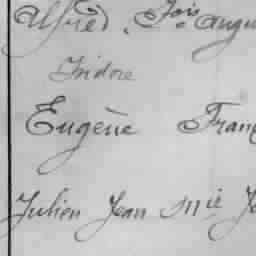 Alfred, Fois Augu
Isidore
Eugène Franç
Julien Jean Mie Jo